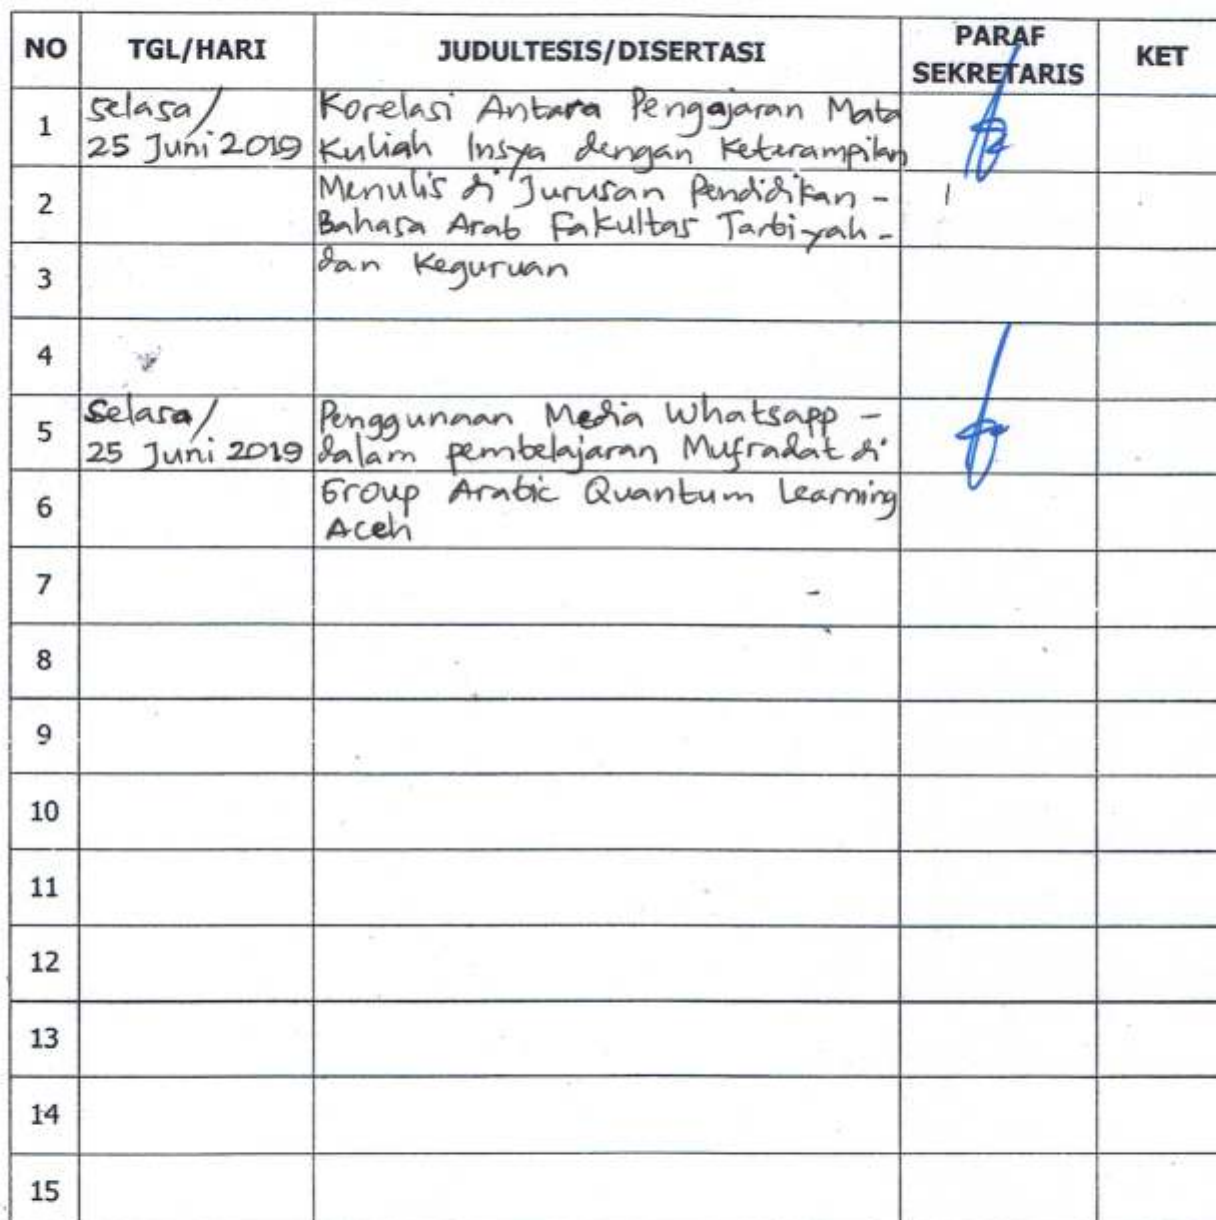 NO TGL/HARI JUDULTESIS/DISERTASI PARAF SEKRETARIS KET
1 Selasa/ Korelasi Antara Pengajaran Mata
25 Juni 2019 Kuliah Insya dengan Keterampilan
2 Menulis di Jurusan Pendidikan -
Bahasa Arab Fakultas Tarbiyah -
3 dan Keguruan
4
5 Selasa/ Penggunaan Media Whatsapp -
25 Juni 2019 dalam pembelajaran Mufradat di
6 Group Arabic Quantum Learning
Aceh
7
8
9
10
11
12
13
14
15